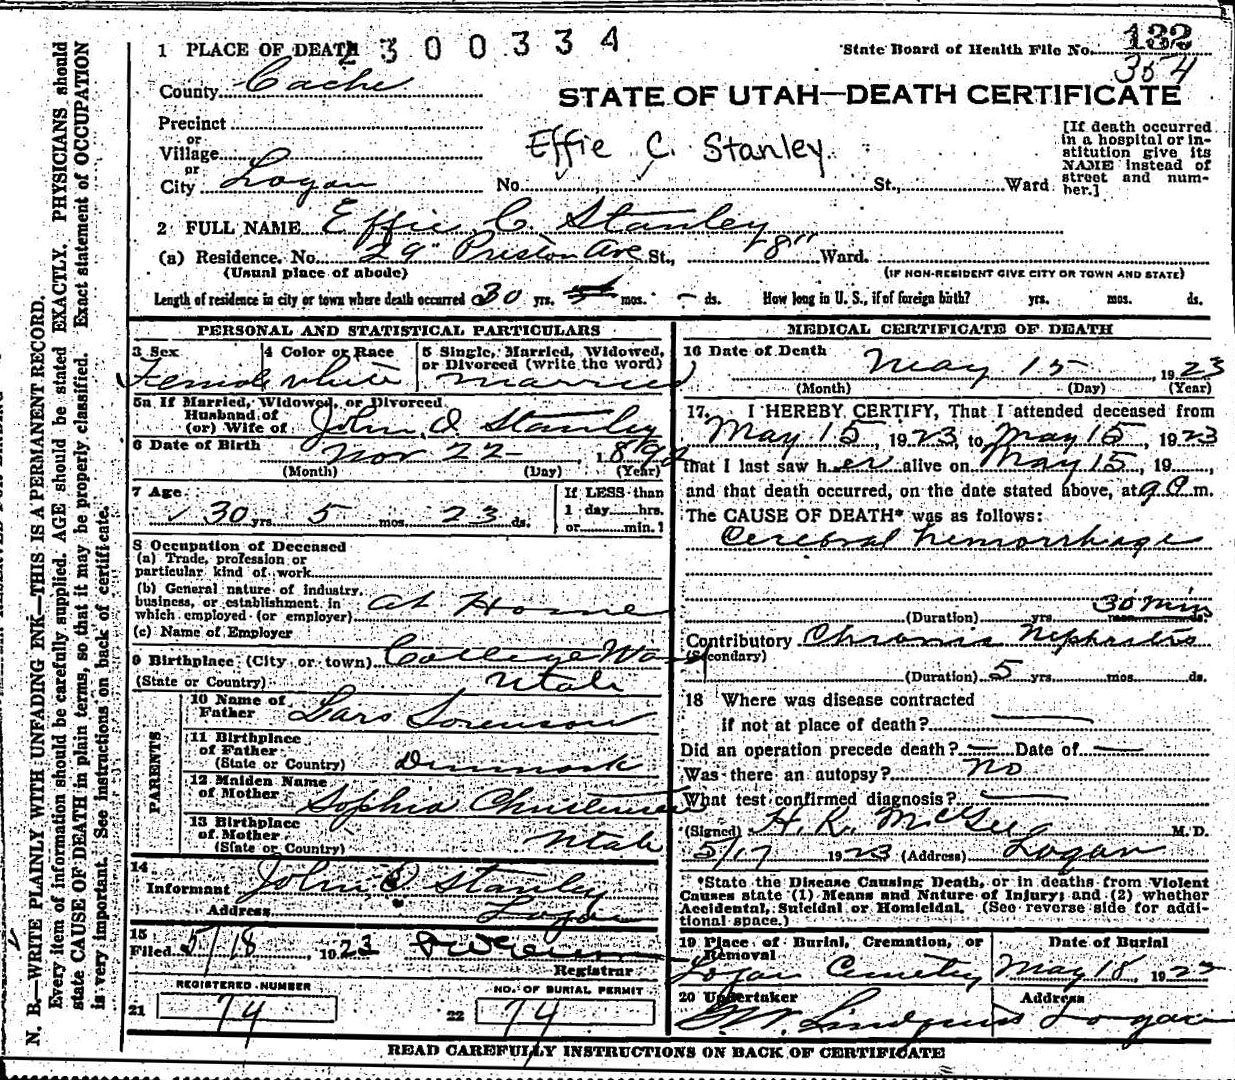 1 PLACE OF DEATH 2300334
State Board of Health File No. 132
354
County Cache
STATE OF UTAH—DEATH CERTIFICATE
Precinct
or
Village
or
City Logan
Effie C. Stanley
No. St., Ward
[If death occurred
in a hospital or in-
stitution give its
NAME instead of
street and num-
ber.]
2 FULL NAME Effie C. Stanley
(a) Residence. No. 29 Preston Ave St., 8" Ward.
(Usual place of abode)
(IF NON-RESIDENT GIVE CITY OR TOWN AND STATE)
Length of residence in city or town where death occurred 30 yrs. mos. - ds. How long in U. S., if of foreign birth? yrs. mos. ds.
PERSONAL AND STATISTICAL PARTICULARS
3 Sex
Female
4 Color or Race
White
5 Single, Married, Widowed,
or Divorced (write the word)
Married
5a If Married, Widowed, or Divorced
Husband of
(or) Wife of John O Stanley
6 Date of Birth
Nov 22 1892
(Month) (Day) (Year)
7 Age
30 yrs. 5 mos. 23 ds.
If LESS than
1 day hrs.
or min.?
8 Occupation of Deceased
(a) Trade, profession or
particular kind of work
(b) General nature of industry,
business, or establishment in
which employed (or employer) at Home
(c) Name of Employer
9 Birthplace (City or town) College Wa
(State or Country) Utah
PARENTS
10 Name of
Father Lars Sorenson
11 Birthplace
of Father
(State or Country) Denmark
12 Maiden Name
of Mother Sophia Christensen
13 Birthplace
of Mother
(State or Country) Utah
14
Informant John O Stanley
Address Logan
15
Filed 5/18, 1923
Registrar
REGISTERED NUMBER
21 74
NO. OF BURIAL PERMIT
22 74
MEDICAL CERTIFICATE OF DEATH
16 Date of Death
May 15, 1923
(Month) (Day) (Year)
17. I HEREBY CERTIFY, That I attended deceased from
May 15, 1923, to May 15, 1923
that I last saw her alive on May 15, 19 ,
and that death occurred, on the date stated above, at 9 a m.
The CAUSE OF DEATH* was as follows:
Cerebral hemorrhage
30 min
(Duration) yrs. mos. ds.
Contributory Chronic Nephritis
(Secondary)
(Duration) 5 yrs. mos. ds.
18 Where was disease contracted
if not at place of death?
Did an operation precede death? Date of
Was there an autopsy? no
What test confirmed diagnosis?
(Signed) H. R. McGee M.D.
5/17 1923 (Address) Logan
*State the Disease Causing Death, or in deaths from Violent
Causes state (1) Means and Nature of Injury; and (2) whether
Accidental, Suicidal or Homicidal. (See reverse side for addi-
tional space.)
19 Place of Burial, Cremation, or
Removal
Logan Cemetery
Date of Burial
May 18, 1923
20 Undertaker
Lindquist
Address
Logan
READ CAREFULLY INSTRUCTIONS ON BACK OF CERTIFICATE
N. B.—WRITE PLAINLY WITH UNFADING INK—THIS IS A PERMANENT RECORD.
Every item of information should be carefully supplied. AGE should be stated EXACTLY. PHYSICIANS should
state CAUSE OF DEATH in plain terms, so that it may be properly classified. Exact statement of OCCUPATION
is very important. See instructions on back of certificate.